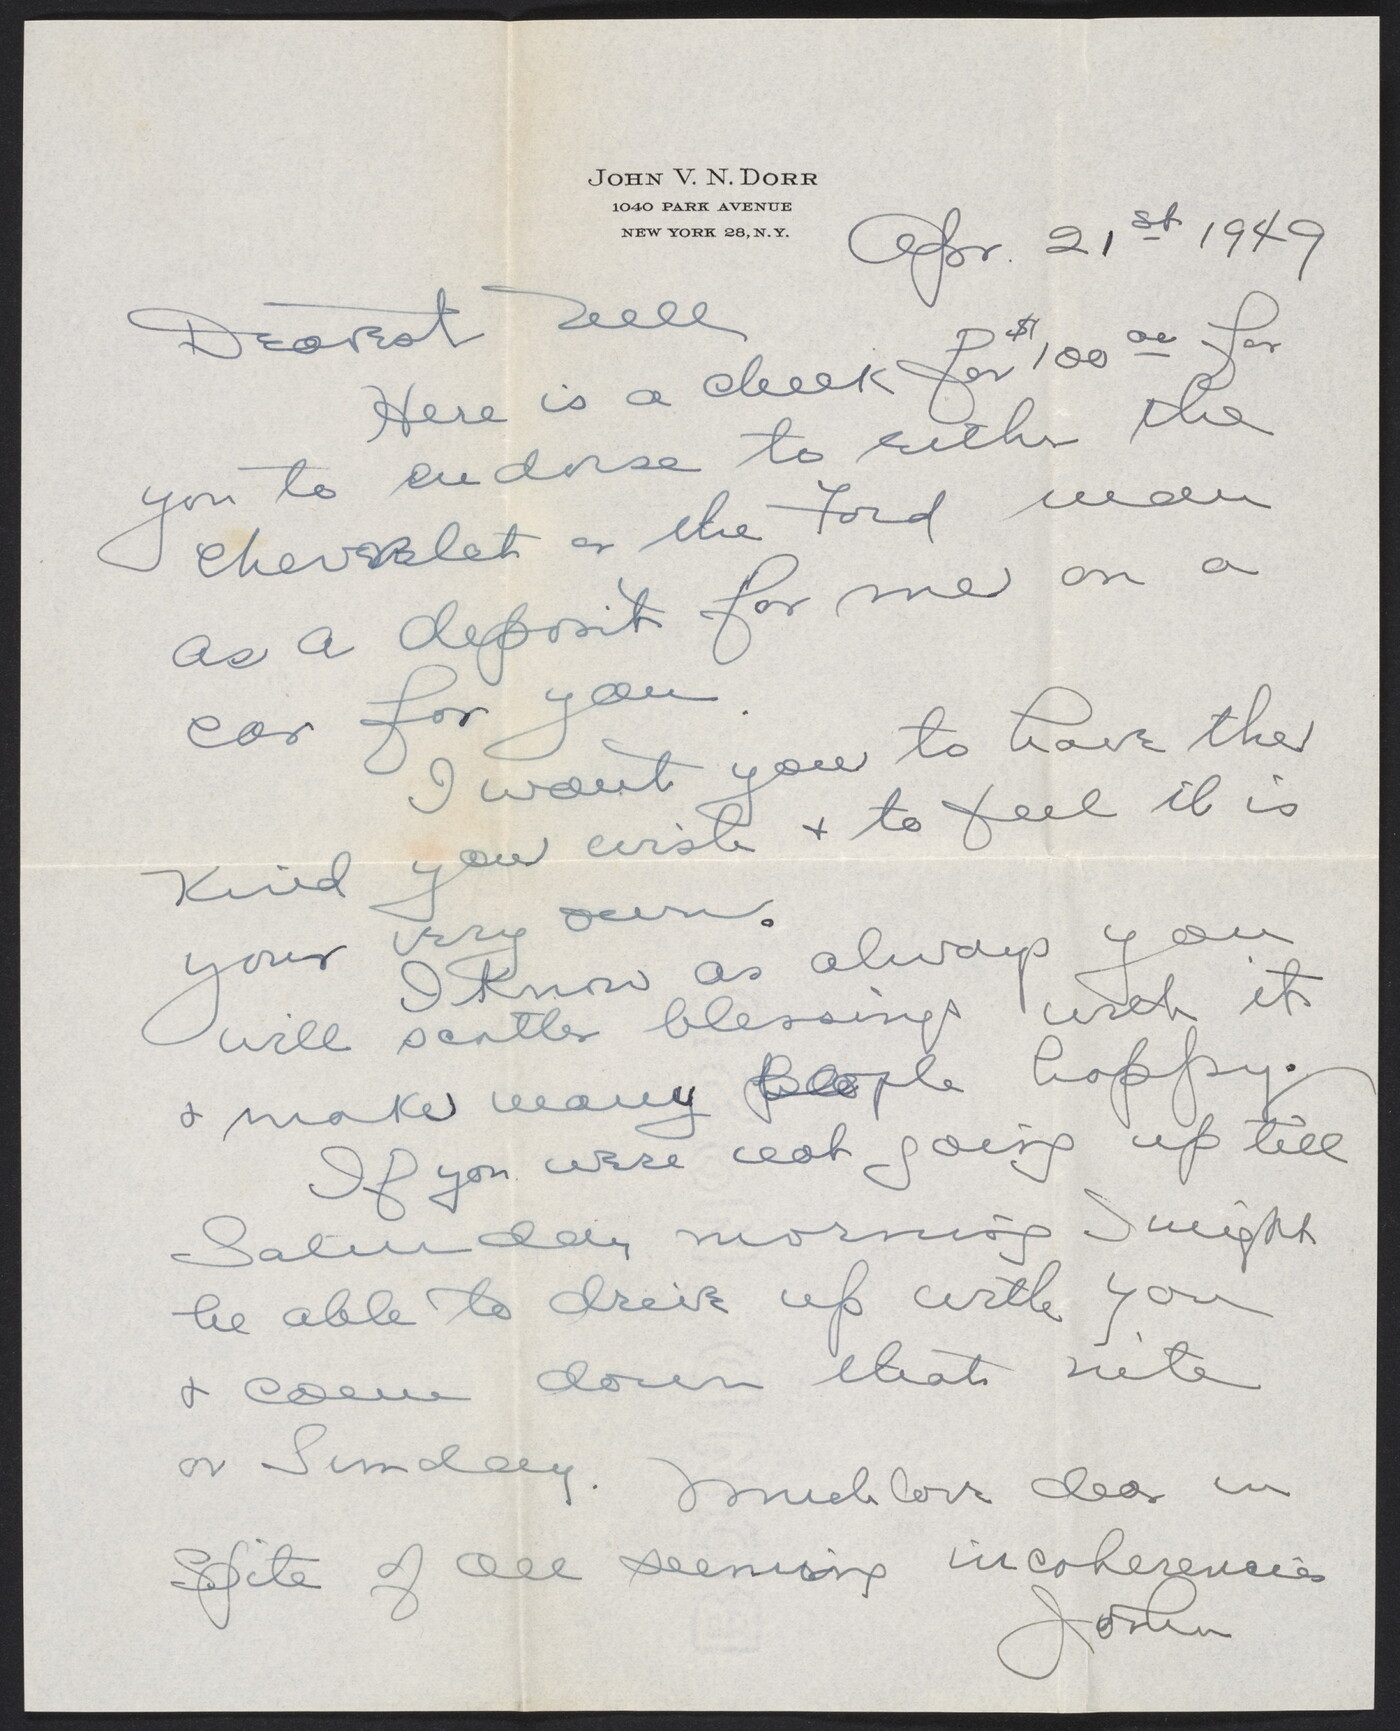 JOHN V. N. DORR
1040 PARK AVENUE
NEW YORK 28, N.Y.
Apr. 21st 1949
Dearest Nell
Here is a check for $100 00 for
you to endorse to either the
chevrolet or the Ford man
as a deposit for me on a
car for you.
I want you to have the
kind you wish & to feel it is
your very own.
I know as always you
will scatter blessings with it
& make many people happy.
If you were not going up till
Saturday morning I might
be able to drive up with you
& come down that nite
or Sunday. Much love dear in
spite of all seeming incoherencies
John